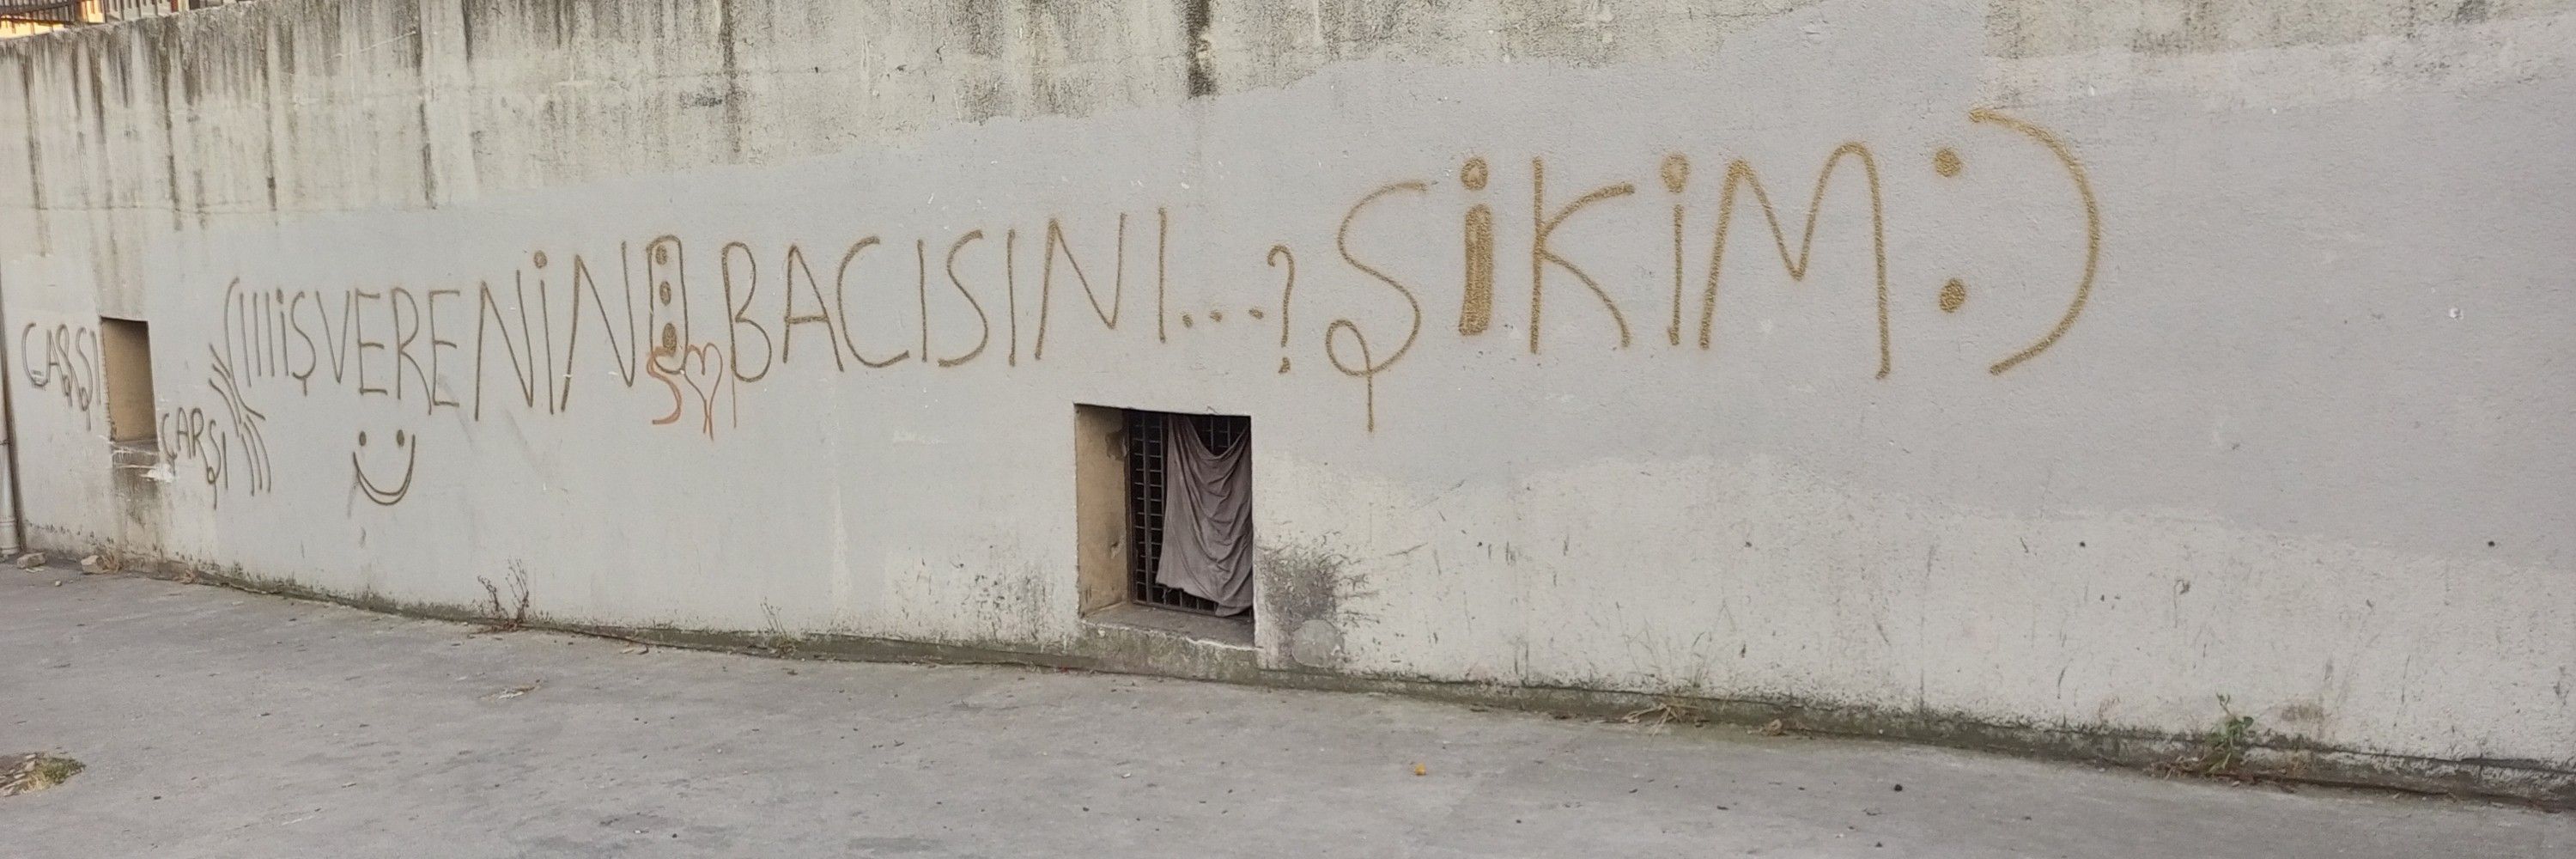 ÇARŞI
ÇARŞI
İŞVERENİN BACISINI...? ŞİKİM :)
S